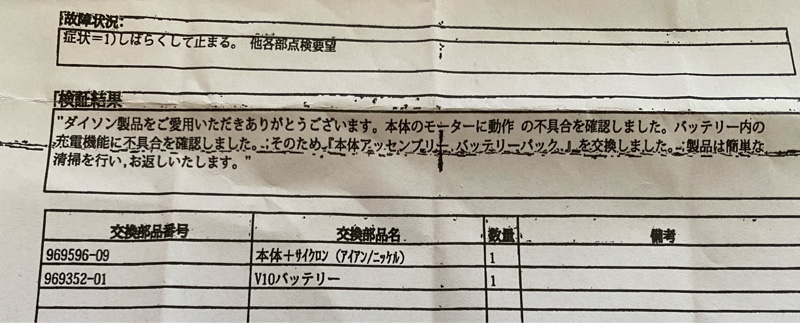 故障状況:
症状=1)しばらくして止まる。 他各部点検要望
検証結果
"ダイソン製品をご愛用いただきありがとうございます。本体のモーターに動作 の不具合を確認しました。バッテリー内の
充電機能に不具合を確認しました。;そのため,『本体アッセンブリー,バッテリーパック,』を交換しました。;製品は簡単な
清掃を行い,お返しいたします。"
交換部品番号 交換部品名 数量 備考
969596-09 本体+サイクロン (アイアン/ニッケル) 1
969352-01 V10バッテリー 1